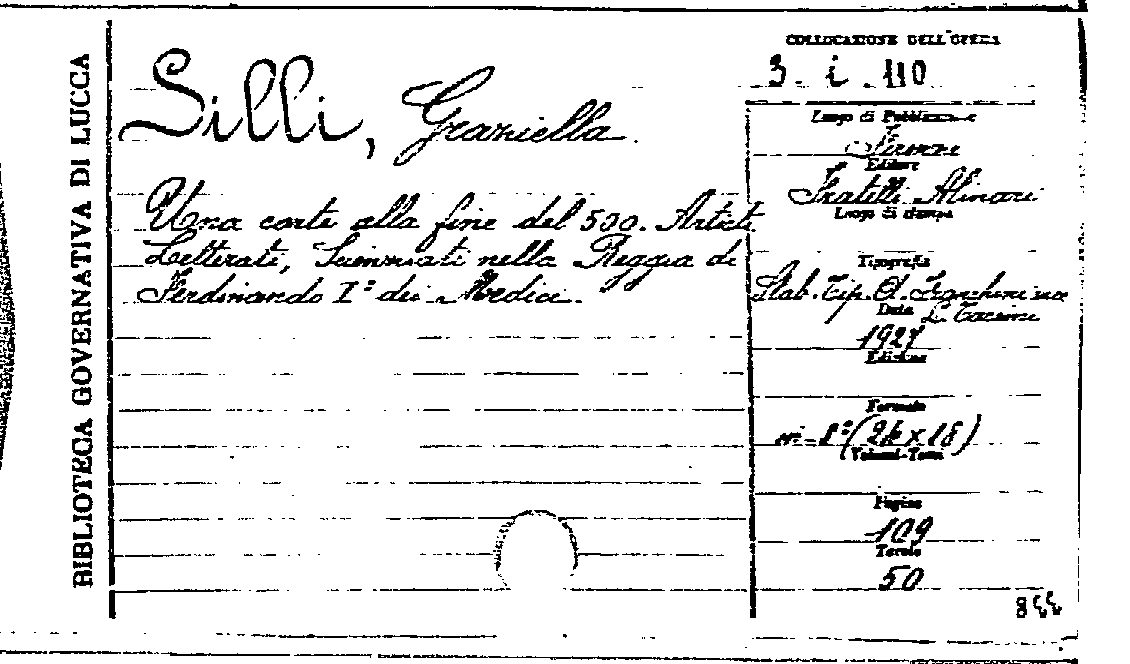 BIBLIOTECA GOVERNATIVA DI LUCCA
COLLOCAZIONE DELL'OPERA
3. i. 110
Silli, Graziella.
Una corte alla fine del 500. Artisti
Letterati, Scienziati nella Reggia di
Ferdinando I° dei Medici.
Luogo di Pubblicazione
Firenze
Editore
Fratelli Alinari
Luogo di stampa
Tipografia
Stab. Tip. A.
Data
1927
Edizione
Formato
in-8°(24x18)
Volumi-Tomi
Pagine
109
Tavole
50